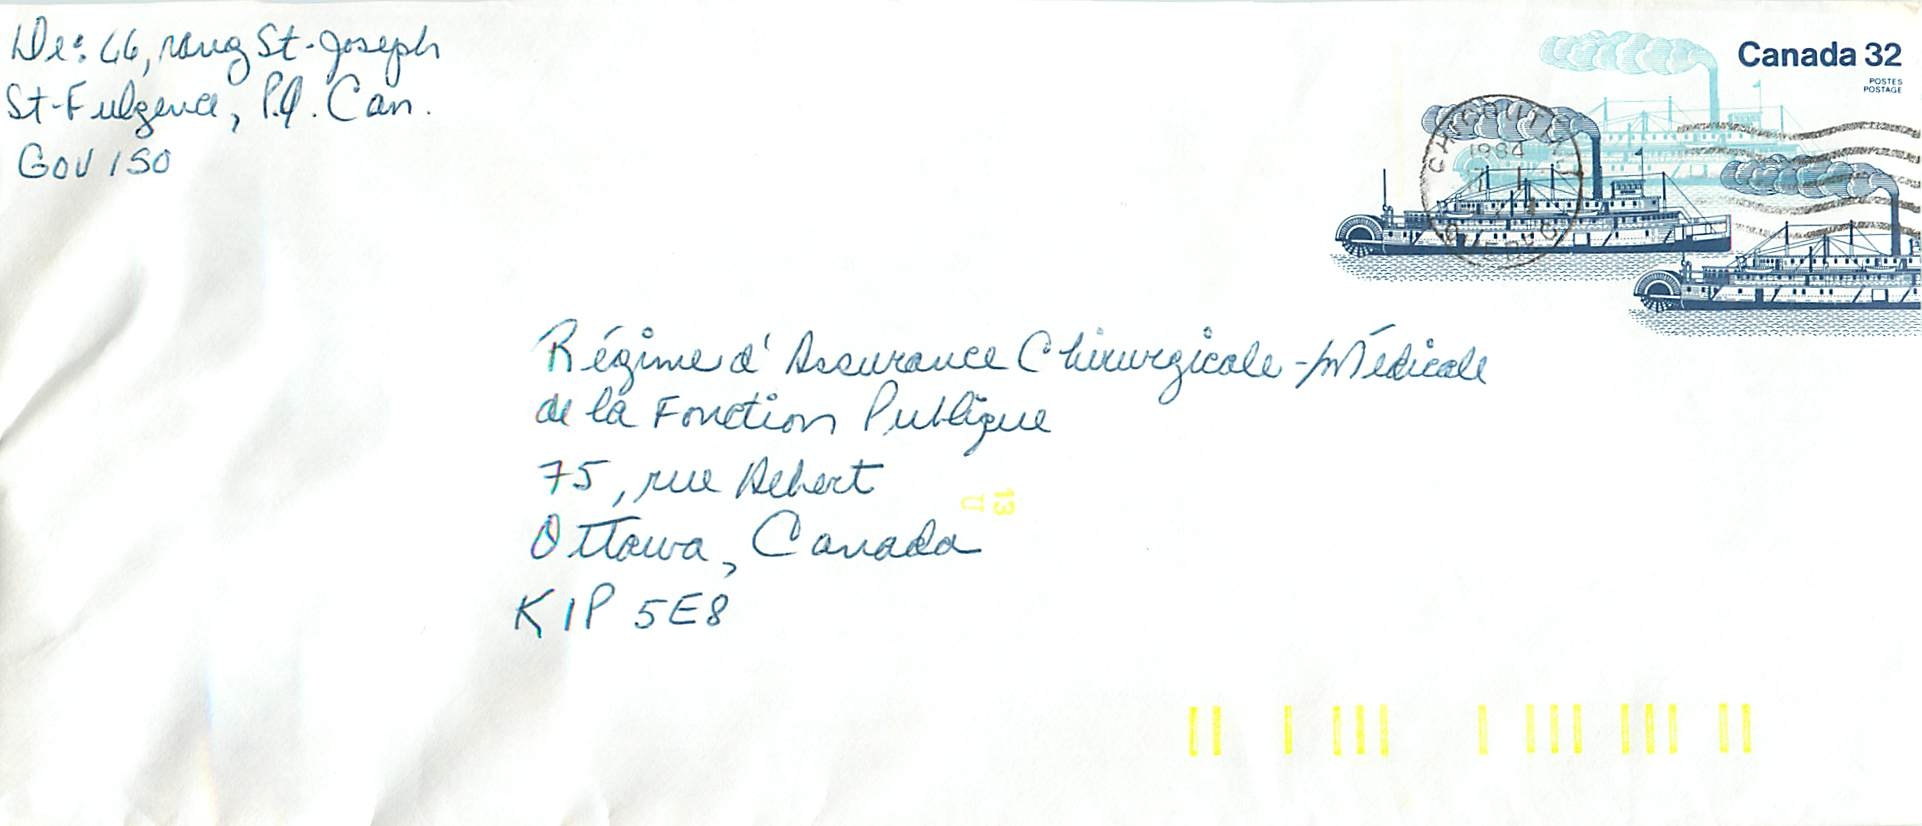 De: 66, rang St-Joseph
St-Fulgence, P.Q. Can.
G0V 1S0
Canada 32
POSTES
POSTAGE
CHICOUTIMI
1984
QUEBEC
Régime d'Assurance Chirurgicale-Médicale
de la Fonction Publique
75, rue Albert
Ottawa, Canada
K1P 5E8
13